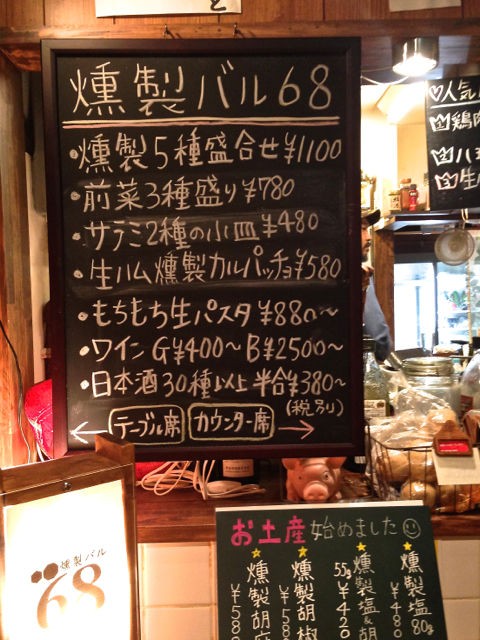 燻製バル68
・燻製5種盛合せ¥1100
・前菜3種盛り¥780
・サラミ2種の小皿¥480
・生ハム燻製カルパッチョ¥580
・もちもち生パスタ¥880〜
・ワインG¥400〜B¥2500〜
・日本酒30種以上半合¥380〜
(税別)
← テーブル席 カウンター席 →
♡人気
鶏肉
ハ
生
燻製バル
68
お土産始めました☺
★燻製塩80g ¥48
★燻製塩&胡 55g ¥42
★燻製胡椒 ¥58
★燻製胡麻 ¥58